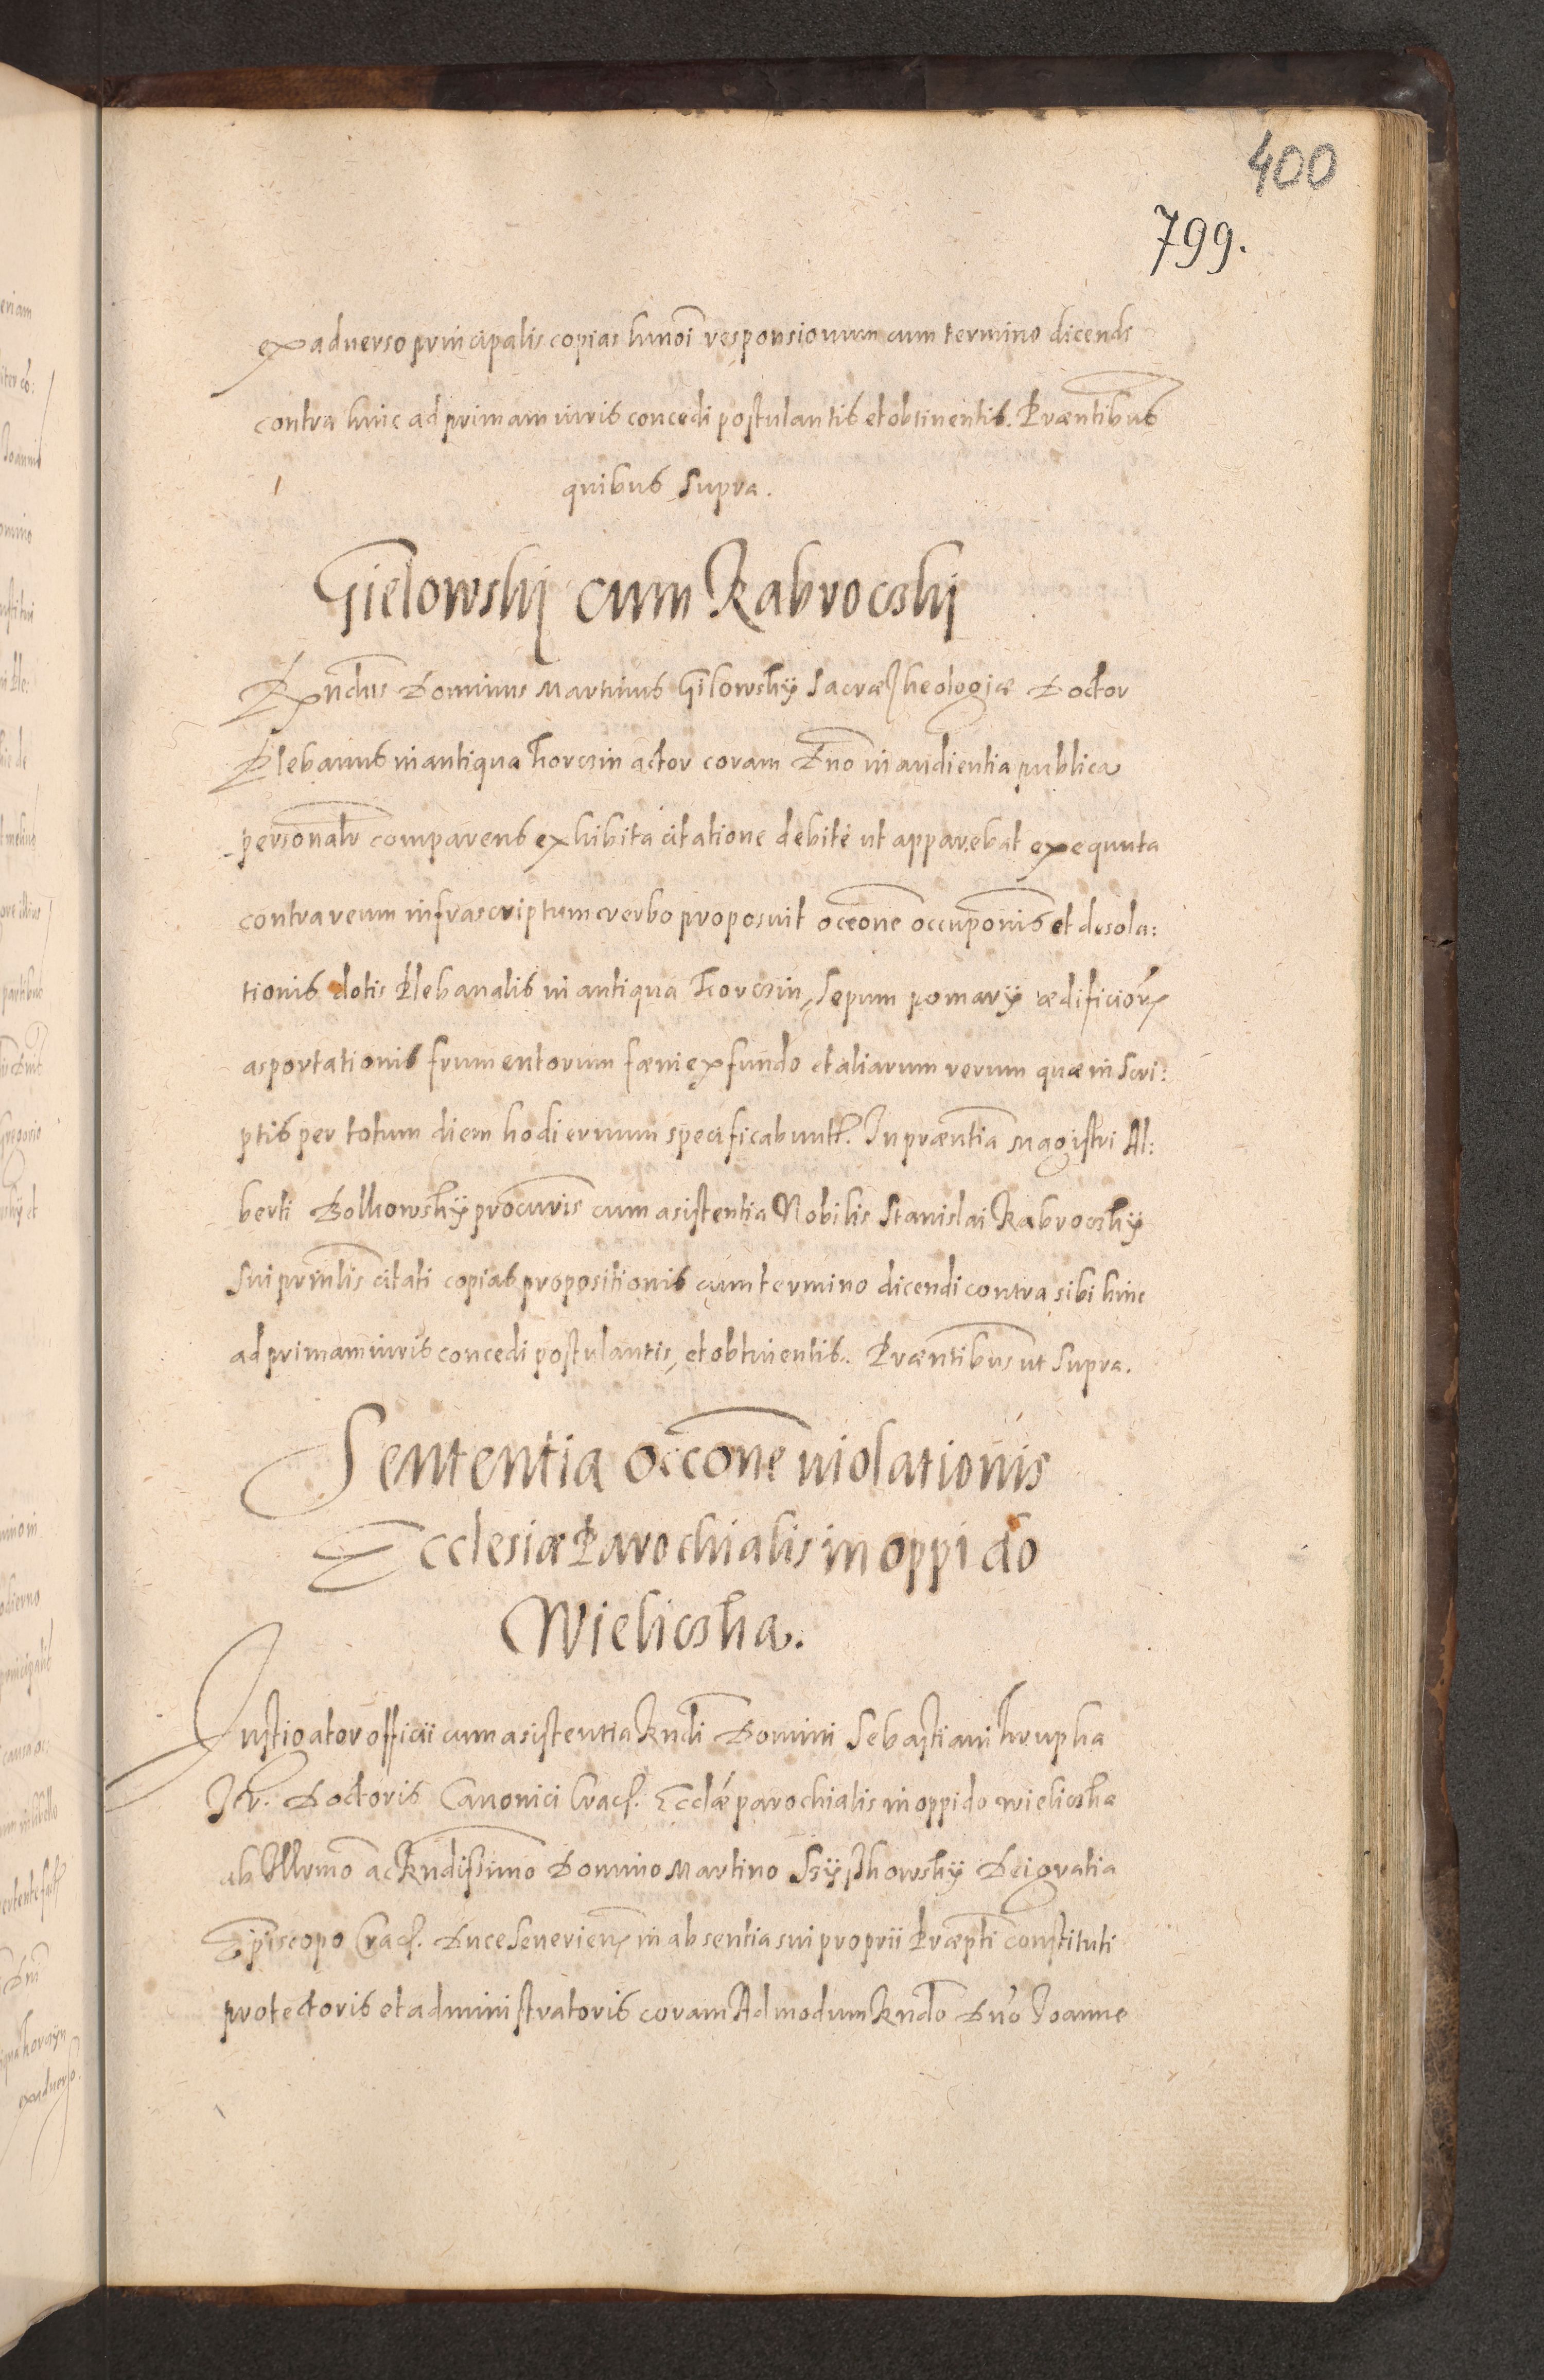 400
799.
ex aduerso principalis copias humoi responsionum cum termino dicendi
contra hinc ad primam iuris concedi postulantis et obtinentis. Praentibus
quibus supra.
Gielowskij cum Kabroczkij
Rndus Dominus Martinus Gilowskÿ Sacræ Theologiæ Doctor
Plebanus in antiqua Korczin actor coram Dno in audientia publica
personalr comparens exhibita citatione debite ut apparebat exequuta
contra reum infrascriptum verbo proposuit occone occuponis et desola:
tionis dotis Plebanalis in antiqua Korczin, sepum pomarÿ ædificior
asportationis frumentorum fæni ex fundo et aliarum rerum quæ in Scri:
ptis per totum diem hodiernum specificabuntr. In præntia magistri Al:
berti Bolkowskÿ procuris cum asistentia Nobilis Stanislai Kabroczkÿ
sui prinlis citati copias propositionis cum termino dicendi contra sibi hinc
ad primam iuris concedi postulantis, et obtinentis. Præntibus ut supra.
Sententia occone uiolationis
Ecclesiæ Parochialis in oppido
Wieliczka.
Instigator officii cum asistentia Rndi Domini Sebastiani Krupka
I. V. Doctoris Canonici Crac. Ecclæ parochialis in oppido Wieliczka
ab Illrmo ac Rndissimo Domino Martino Szÿskowskÿ Dei gratia
Episcopo Crac. Duce Seuerien in absentia sui proprii Præpti constituti
protectoris et administratoris coram Admodum Rndo Dno Joanne